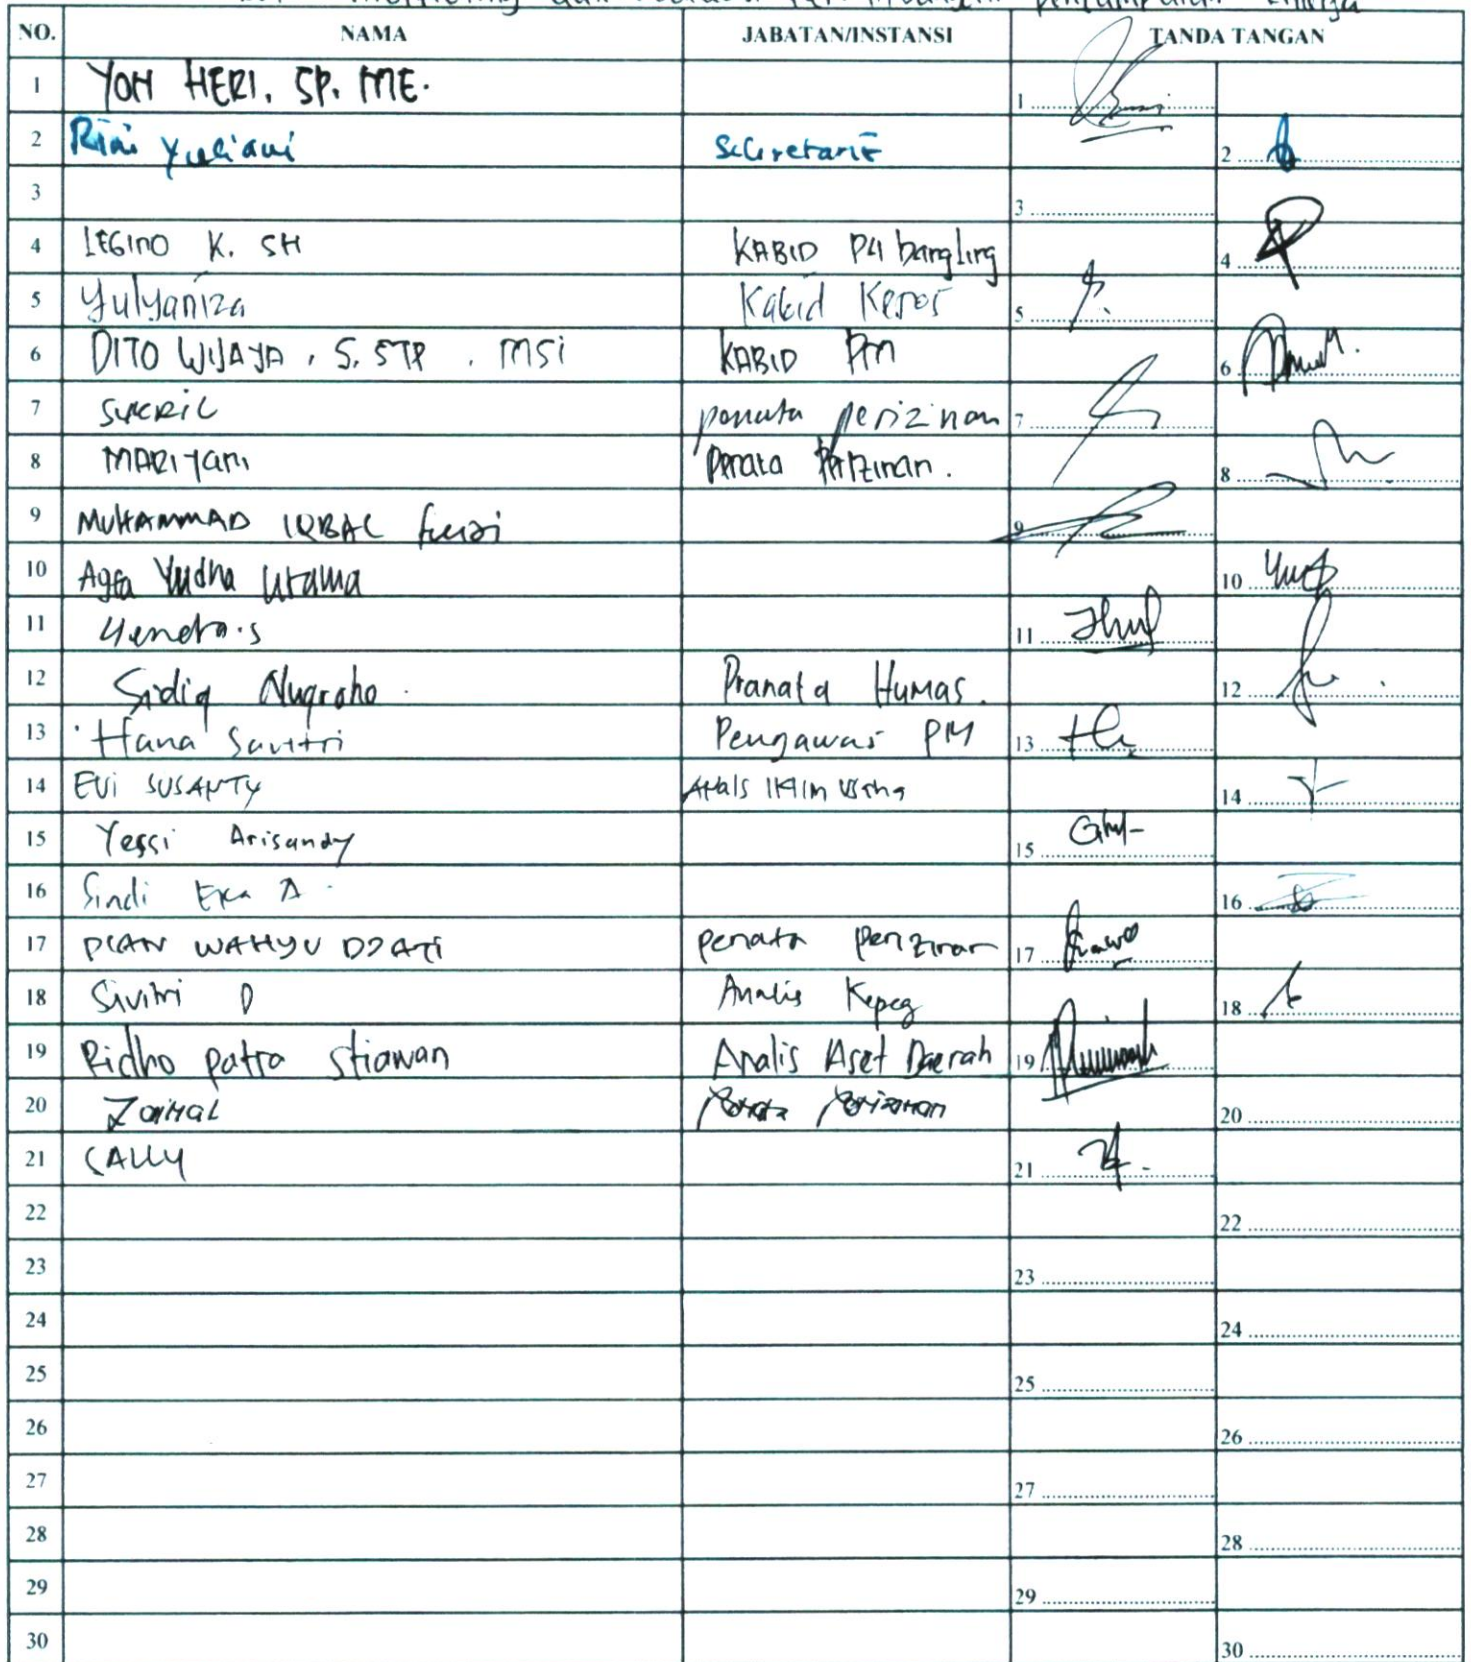 dan pencapaian kinerja
NO. NAMA JABATAN/INSTANSI TANDA TANGAN
1 YON HERI. SP. ME. 1
2 Rini Yuliani Sekretaris 2
3 3
4 LEGINO K. SH KABID P4 bangling 4
5 Yulyaniza Kabid 5
6 DITO WIJAYA, S. STP. MSi KABID PM 6
7 SUKRIL penata perizinan 7
8 MARIYANI Penata Perizinan. 8
9 MUHAMMAD IQBAL 9
10 Agfa Yudha Utama 10
11 Hendra.s 11
12 Sidiq Nugroho. Pranata Humas. 12
13 Hana Savitri Pengawas PM 13
14 EVI SUSANTY 14
15 Yessi Arisandy 15
16 Sindi Eka A. 16
17 DIAN WAHYU penata perizinan 17
18 Sivitri D Analis Kepeg 18
19 Ridho patra stiawan Analis Aset Daerah 19
20 20
21 SALLY 21
22 22
23 23
24 24
25 25
26 26
27 27
28 28
29 29
30 30